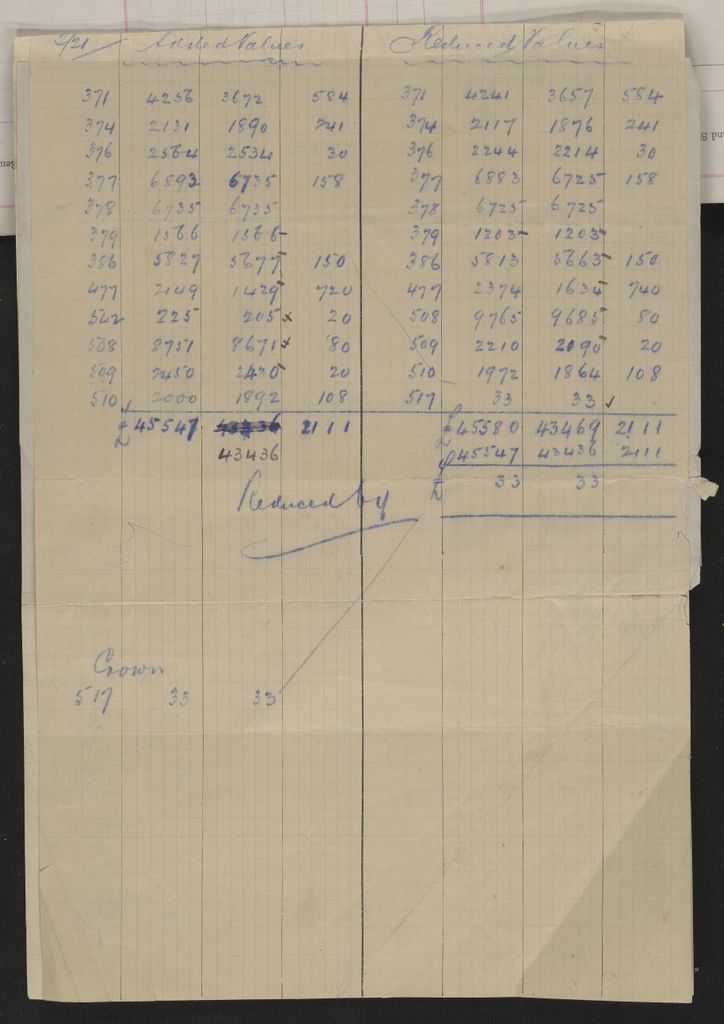 2/21 Added Values Reduced Values
371 4256 3672 584 371 4241 3657 584
374 2131 1890 241 374 2117 1876 241
376 2564 2534 30 376 2244 2214 30
377 6893 6735 158 377 6883 6725 158
378 6735 6735 378 6725 6725
379 1566 1566 379 1203 1203
386 5827 5677 150 386 5813 5663 150
477 2149 1429 720 477 2374 1634 740
502 225 205 x 20 508 9765 9685 80
508 8751 8671 x 80 509 2210 2190 20
509 2450 2430 20 510 1972 1864 108
510 2000 1892 108 517 33 33 ✓
£ 45547 43436 2111 £ 45580 43469 2111
43436 45547 43436 2111
Reduced by £ 33 33
Crown
517 33 33